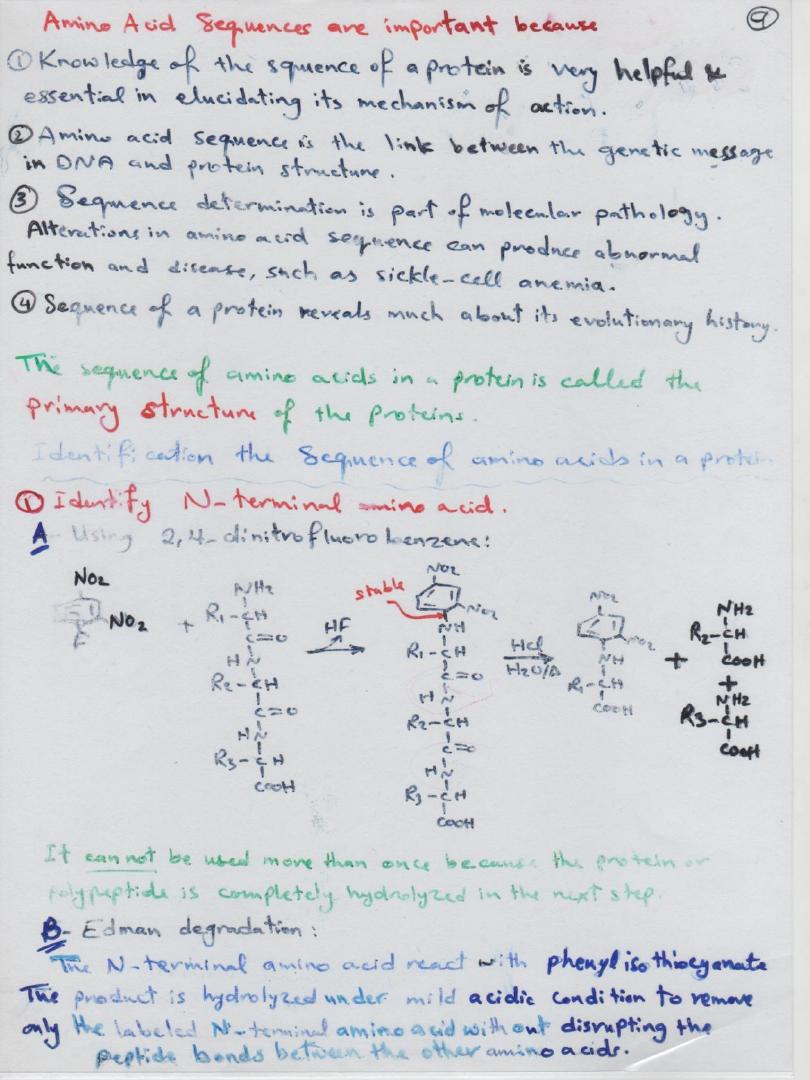 Amino Acid Sequences are important because
9
① Knowledge of the squence of a protein is very helpful &
essential in elucidating its mechanism of action.
② Amino acid sequence is the link between the genetic message
in DNA and protein structure.
③ Sequence determination is part of molecular pathology.
Alterations in amino acid sequence can produce abnormal
function and disease, such as sickle-cell anemia.
④ Sequence of a protein reveals much about its evolutionary history.
The sequence of amino acids in a protein is called the
primary structure of the proteins.
Identification the Sequence of amino acids in a protein
① Identify N-terminal amino acid.
A- Using 2,4-dinitrofluorobenzene:
NO2
NO2
F
+
NH2
R1-CH
C=O
H N
R2-CH
C=O
H N
R3-CH
COOH
HF
stable
NO2
NO2
NH
R1-CH
C=O
H N
R2-CH
C=
H N
R3-CH
COOH
HCl
H2O/Δ
NO2
NO2
NH
R1-CH
COOH
+
NH2
R2-CH
COOH
+
NH2
R3-CH
COOH
It cannot be used more than once because the protein or
polypeptide is completely hydrolyzed in the next step.
B- Edman degradation:
The N-terminal amino acid react with phenyl isothiocyanate
The product is hydrolyzed under mild acidic condition to remove
only the labeled N-terminal amino acid without disrupting the
peptide bonds between the other amino acids.